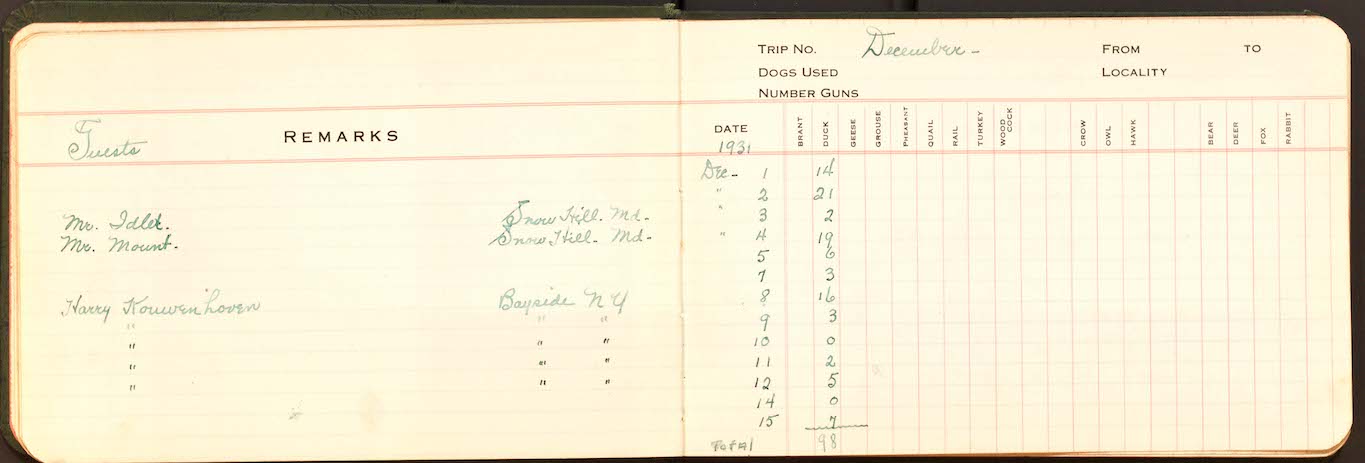 TRIP NO. December - FROM TO
DOGS USED LOCALITY
NUMBER GUNS
Guests REMARKS
DATE BRANT DUCK GEESE GROUSE PHEASANT QUAIL RAIL TURKEY WOOD COCK CROW OWL HAWK BEAR DEER FOX RABBIT
1931
Dec - 1 14
" 2 21
Mr. Idler. Snow Hill. Md - " 3 2
Mr. Mount. Snow Hill. Md - " 4 19
5 6
7 3
Harry Kouwenhoven Bayside N Y 8 16
" " " 9 3
" " " 10 0
" " " 11 2
" " " 12 5
14 0
15 7
Total 98